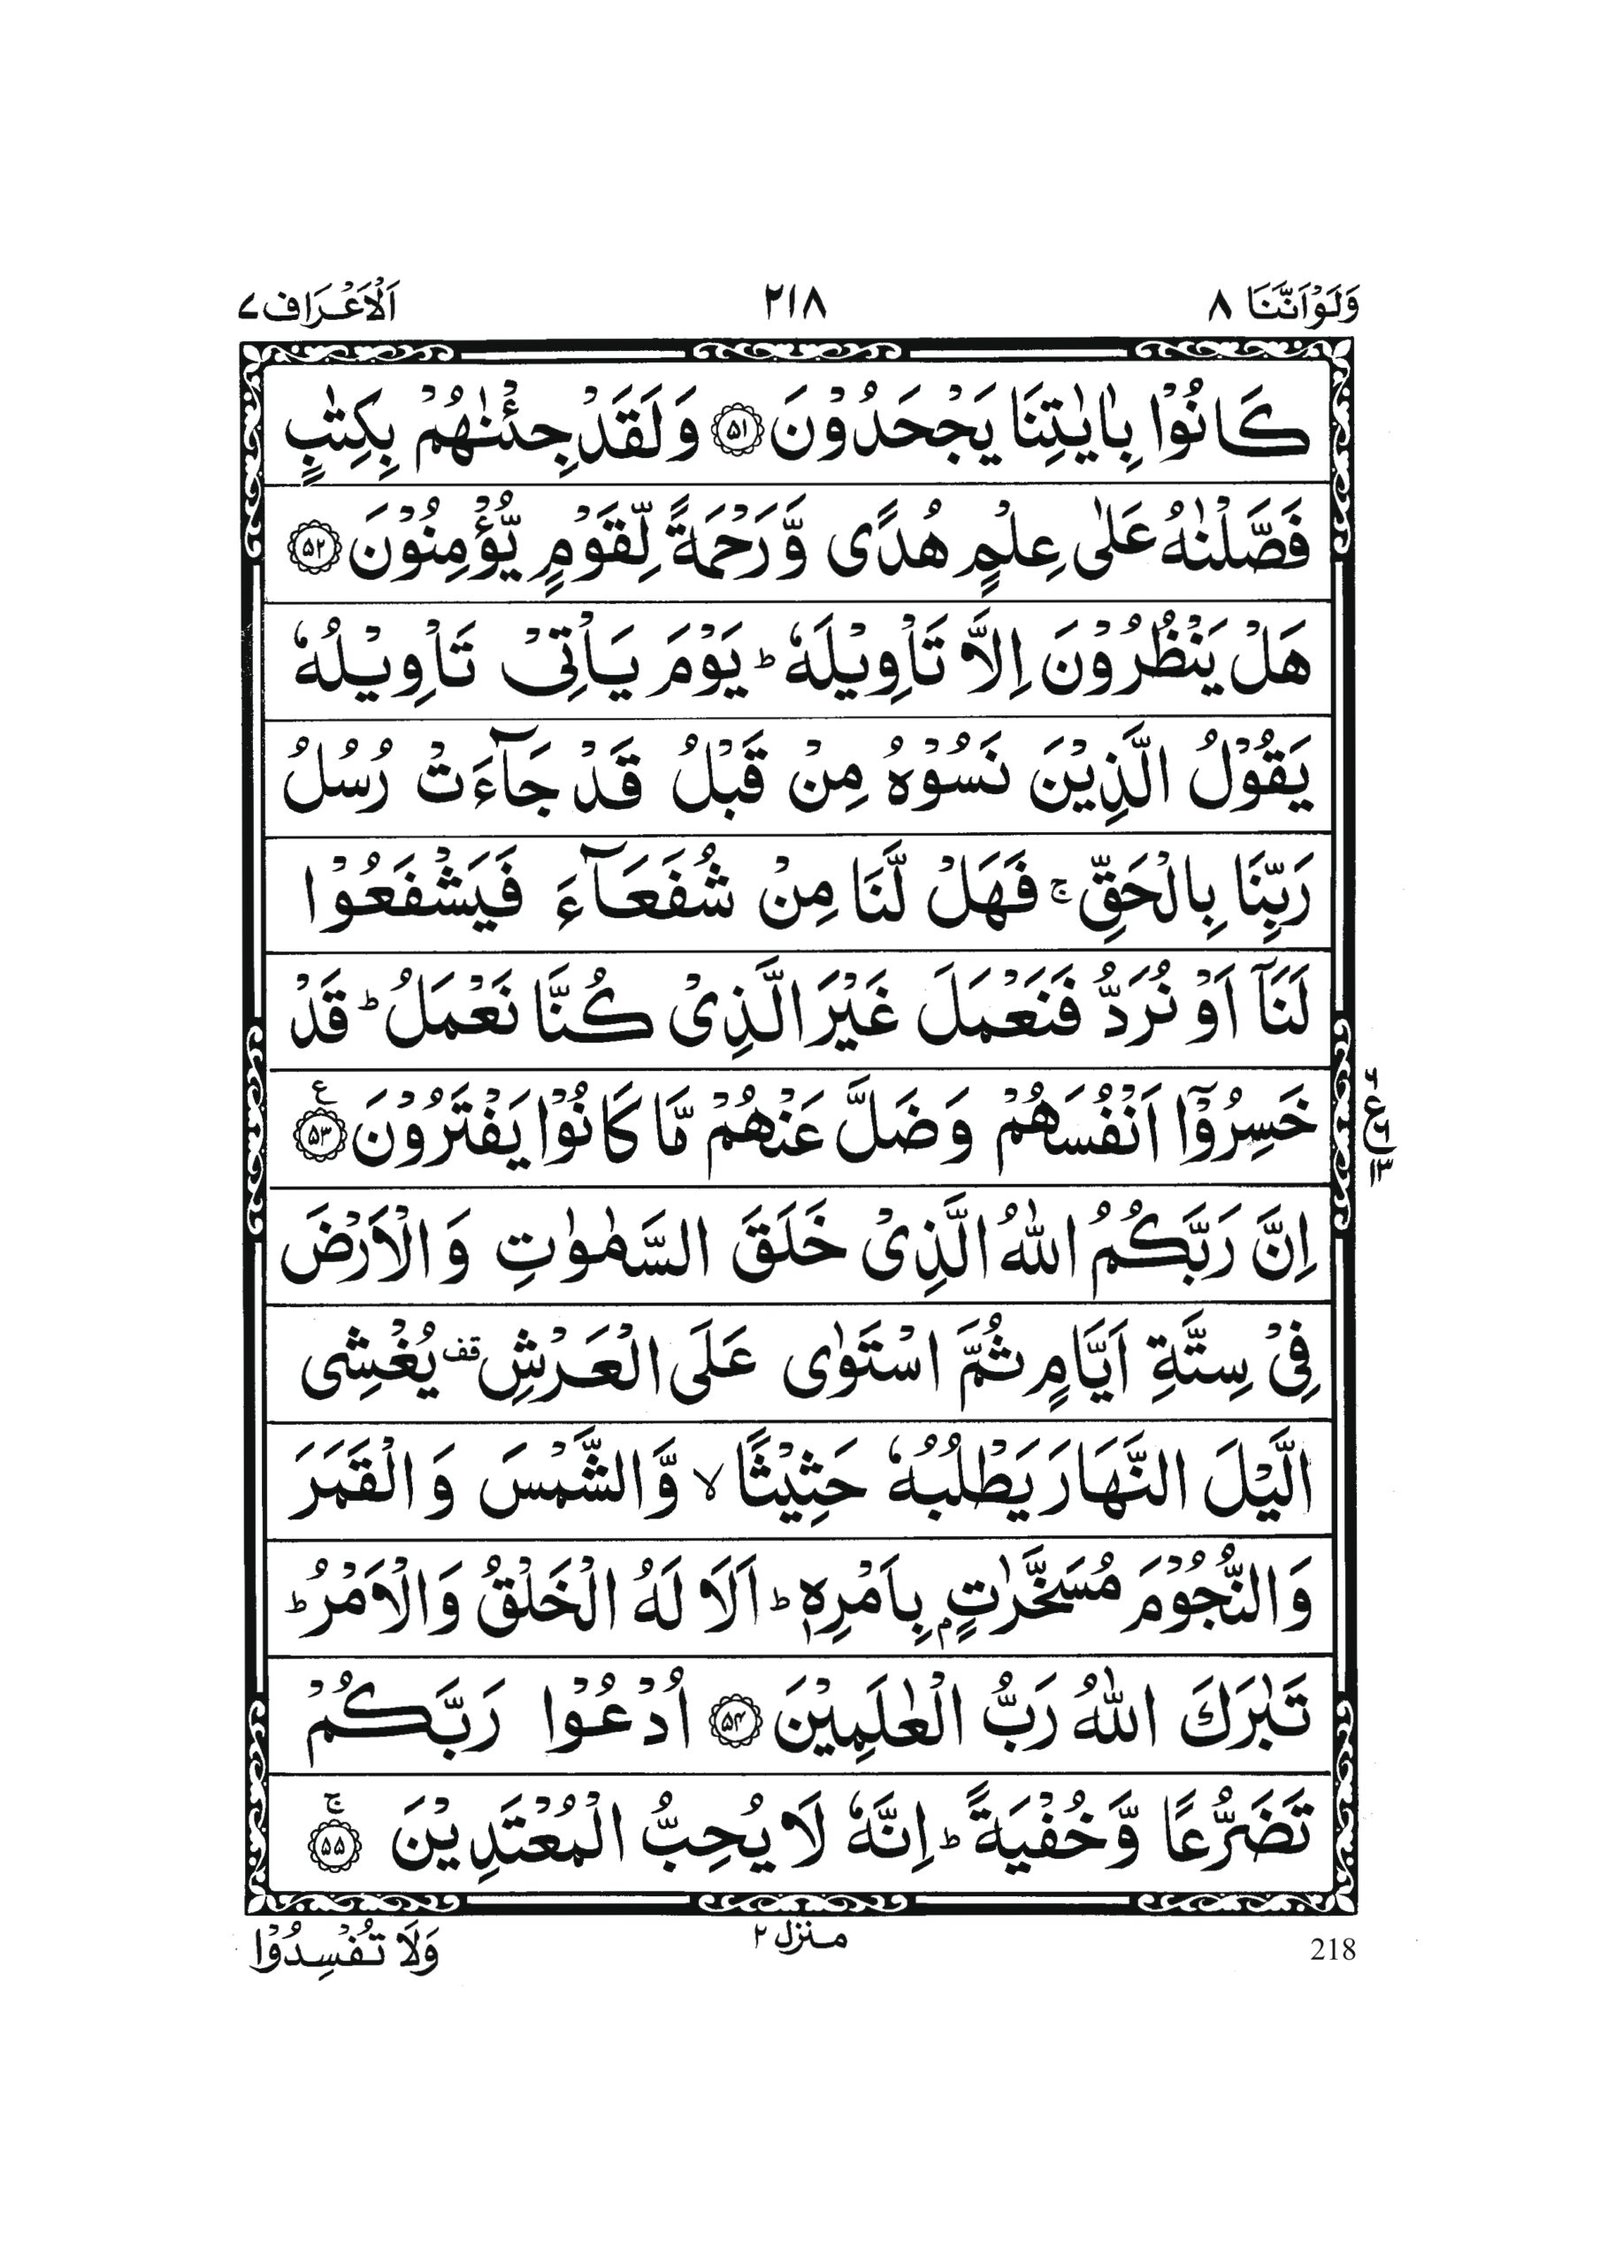 وَلَوْاَنَّنَا ۸
۲۱۸
اَلْاَعْرَاف ۷
كَانُوْا بِاٰيٰتِنَا يَجْحَدُوْنَ ۵۱ وَلَقَدْ جِئْنٰهُمْ بِكِتٰبٍ
فَصَّلْنٰهُ عَلٰى عِلْمٍ هُدًى وَّرَحْمَةً لِّقَوْمٍ يُّؤْمِنُوْنَ ۵۲
هَلْ يَنْظُرُوْنَ اِلَّا تَاْوِيْلَهٗ ؕ يَوْمَ يَاْتِيْ تَاْوِيْلُهٗ
يَقُوْلُ الَّذِيْنَ نَسُوْهُ مِنْ قَبْلُ قَدْ جَآءَتْ رُسُلُ
رَبِّنَا بِالْحَقِّ ۚ فَهَلْ لَّنَا مِنْ شُفَعَآءَ فَيَشْفَعُوْا
لَنَآ اَوْ نُرَدُّ فَنَعْمَلَ غَيْرَ الَّذِيْ كُنَّا نَعْمَلُ ؕ قَدْ
خَسِرُوْٓا اَنْفُسَهُمْ وَضَلَّ عَنْهُمْ مَّا كَانُوْا يَفْتَرُوْنَ ۵۳ ع
اِنَّ رَبَّكُمُ اللّٰهُ الَّذِيْ خَلَقَ السَّمٰوٰتِ وَالْاَرْضَ
فِيْ سِتَّةِ اَيَّامٍ ثُمَّ اسْتَوٰى عَلَى الْعَرْشِ قف يُغْشِى
الَّيْلَ النَّهَارَ يَطْلُبُهٗ حَثِيْثًا ۙ وَّالشَّمْسَ وَالْقَمَرَ
وَالنُّجُوْمَ مُسَخَّرٰتٍۭ بِاَمْرِهٖ ؕ اَلَا لَهُ الْخَلْقُ وَالْاَمْرُ ؕ
تَبٰرَكَ اللّٰهُ رَبُّ الْعٰلَمِيْنَ ۵۴ اُدْعُوْا رَبَّكُمْ
تَضَرُّعًا وَّخُفْيَةً ؕ اِنَّهٗ لَا يُحِبُّ الْمُعْتَدِيْنَ ۵۵ ۚ
218
منزل ۲
وَلَا تُفْسِدُوْا